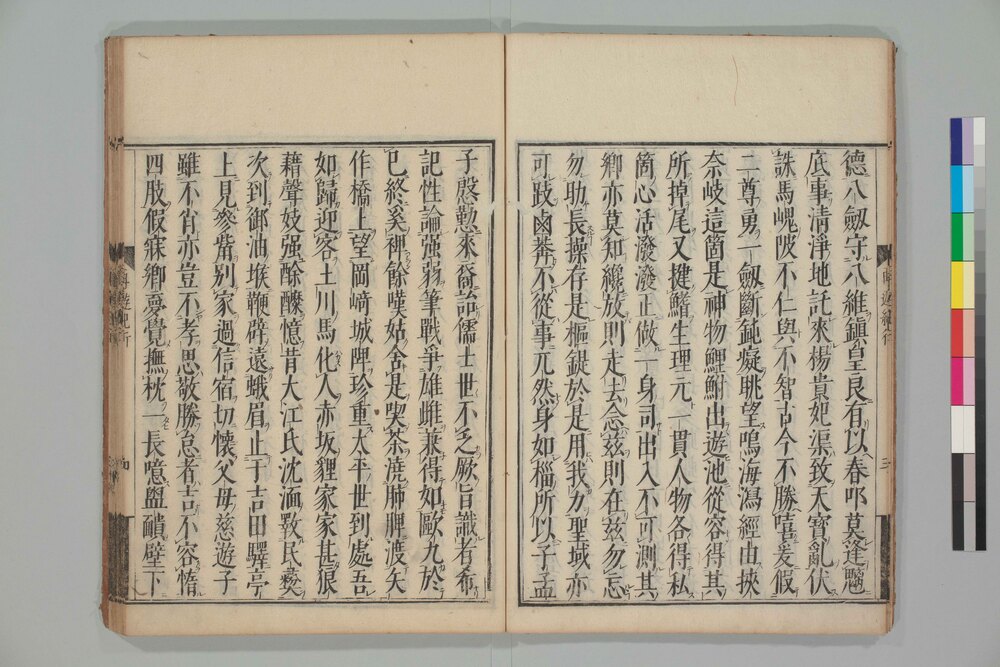 德八劔守八維鎮皇艮有以春叩莫逢魑
底事清淨地託來楊貴妃渠致天寶亂伏
誅馬嵬陂不仁與不智古今不勝嘻爰假
二尊勇一劔斷鈍癡眺望鳴海潟經由挾
奈岐這箇是神物鯉鮒出遊池從容得其
所掉尾又揵鰭生理元一貫人物各得私
箇心活潑潑正做一身司出入不可測其
鄉亦莫知纔放則走去念兹則在兹勿忘
勿助長操存是樞鍉於是用我力聖域亦
可跂鹵莾不從事兀然身如椔所以子孟
子慇懃來裔詒儒士世不乏厥旨識者希
記性論强弱筆戰爭雄雌兼得如歐九於
已終奚裨餘嘆姑舍是喫茶澆肺脾渡矢
作橋上望岡﨑城陴珍重太平世到處吾
如歸迎客土川馬化人赤坂貍家家甚狠
藉聲妓强酴醾憶昔大江氏沈湎斁民彜
次到御油堠鞭辟遠蛾眉止于吉田驛亭
上見參觜别家過信宿切懷父母慈遊子
雖不肖亦豈不孝思敬勝怠者吉不容惰
四肢假寐鄉夢覺撫枕一長噫盥靧壁下